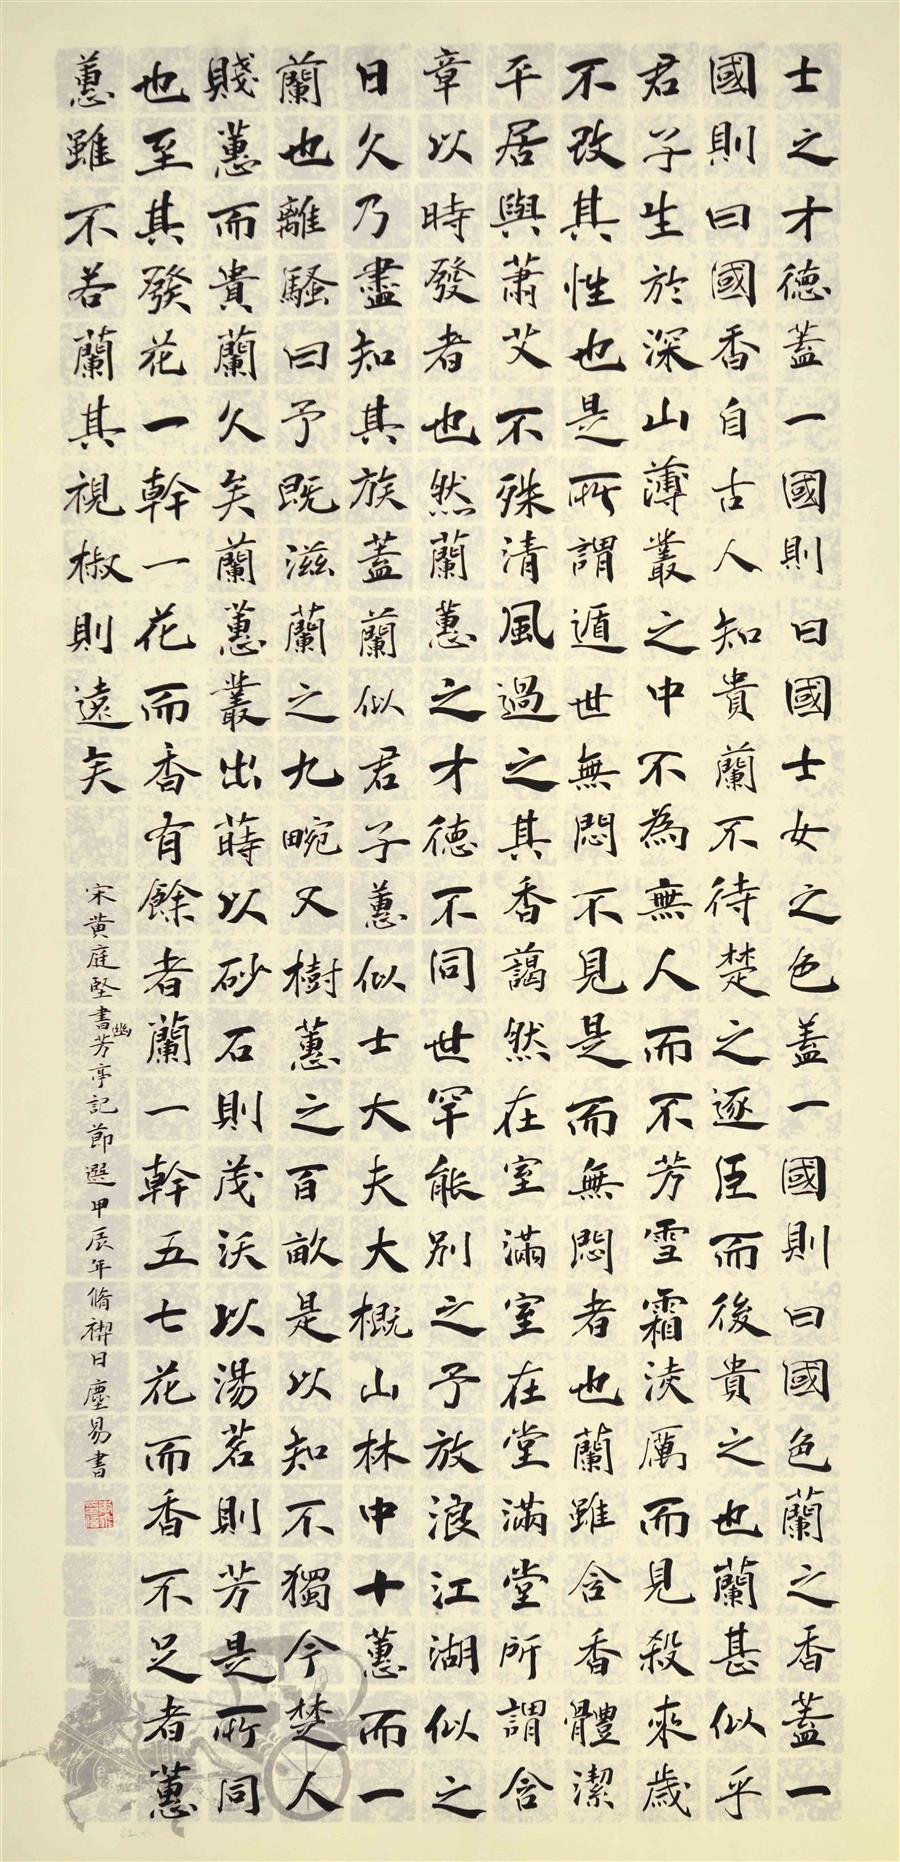 士之才德蓋一國則曰國士女之色蓋一國則曰國色蘭之香蓋一
國則曰國香自古人知貴蘭不待楚之逐臣而後貴之也蘭甚似乎
君子生於深山薄叢之中不為無人而不芳雪霜淩厲而見殺來歲
不改其性也是所謂遁世無悶不見是而無悶者也蘭雖含香體潔
平居與蕭艾不殊清風過之其香藹然在室滿室在堂滿堂所謂含
章以時發者也然蘭蕙之才德不同世罕能別之予放浪江湖似之
日久乃盡知其族蓋蘭似君子蕙似士大夫大概山林中十蕙而一
蘭也離騷曰予既滋蘭之九畹又樹蕙之百畝是以知不獨今楚人
賤蕙而貴蘭久矣蘭蕙叢出蒔以砂石則茂沃以湯茗則芳是所同
也至其發花一幹一花而香有餘者蘭一幹五七花而香不足者蕙
蕙雖不若蘭其視椒則遠矣
宋黃庭堅書幽芳亭記節選甲辰年脩禊日塵易書